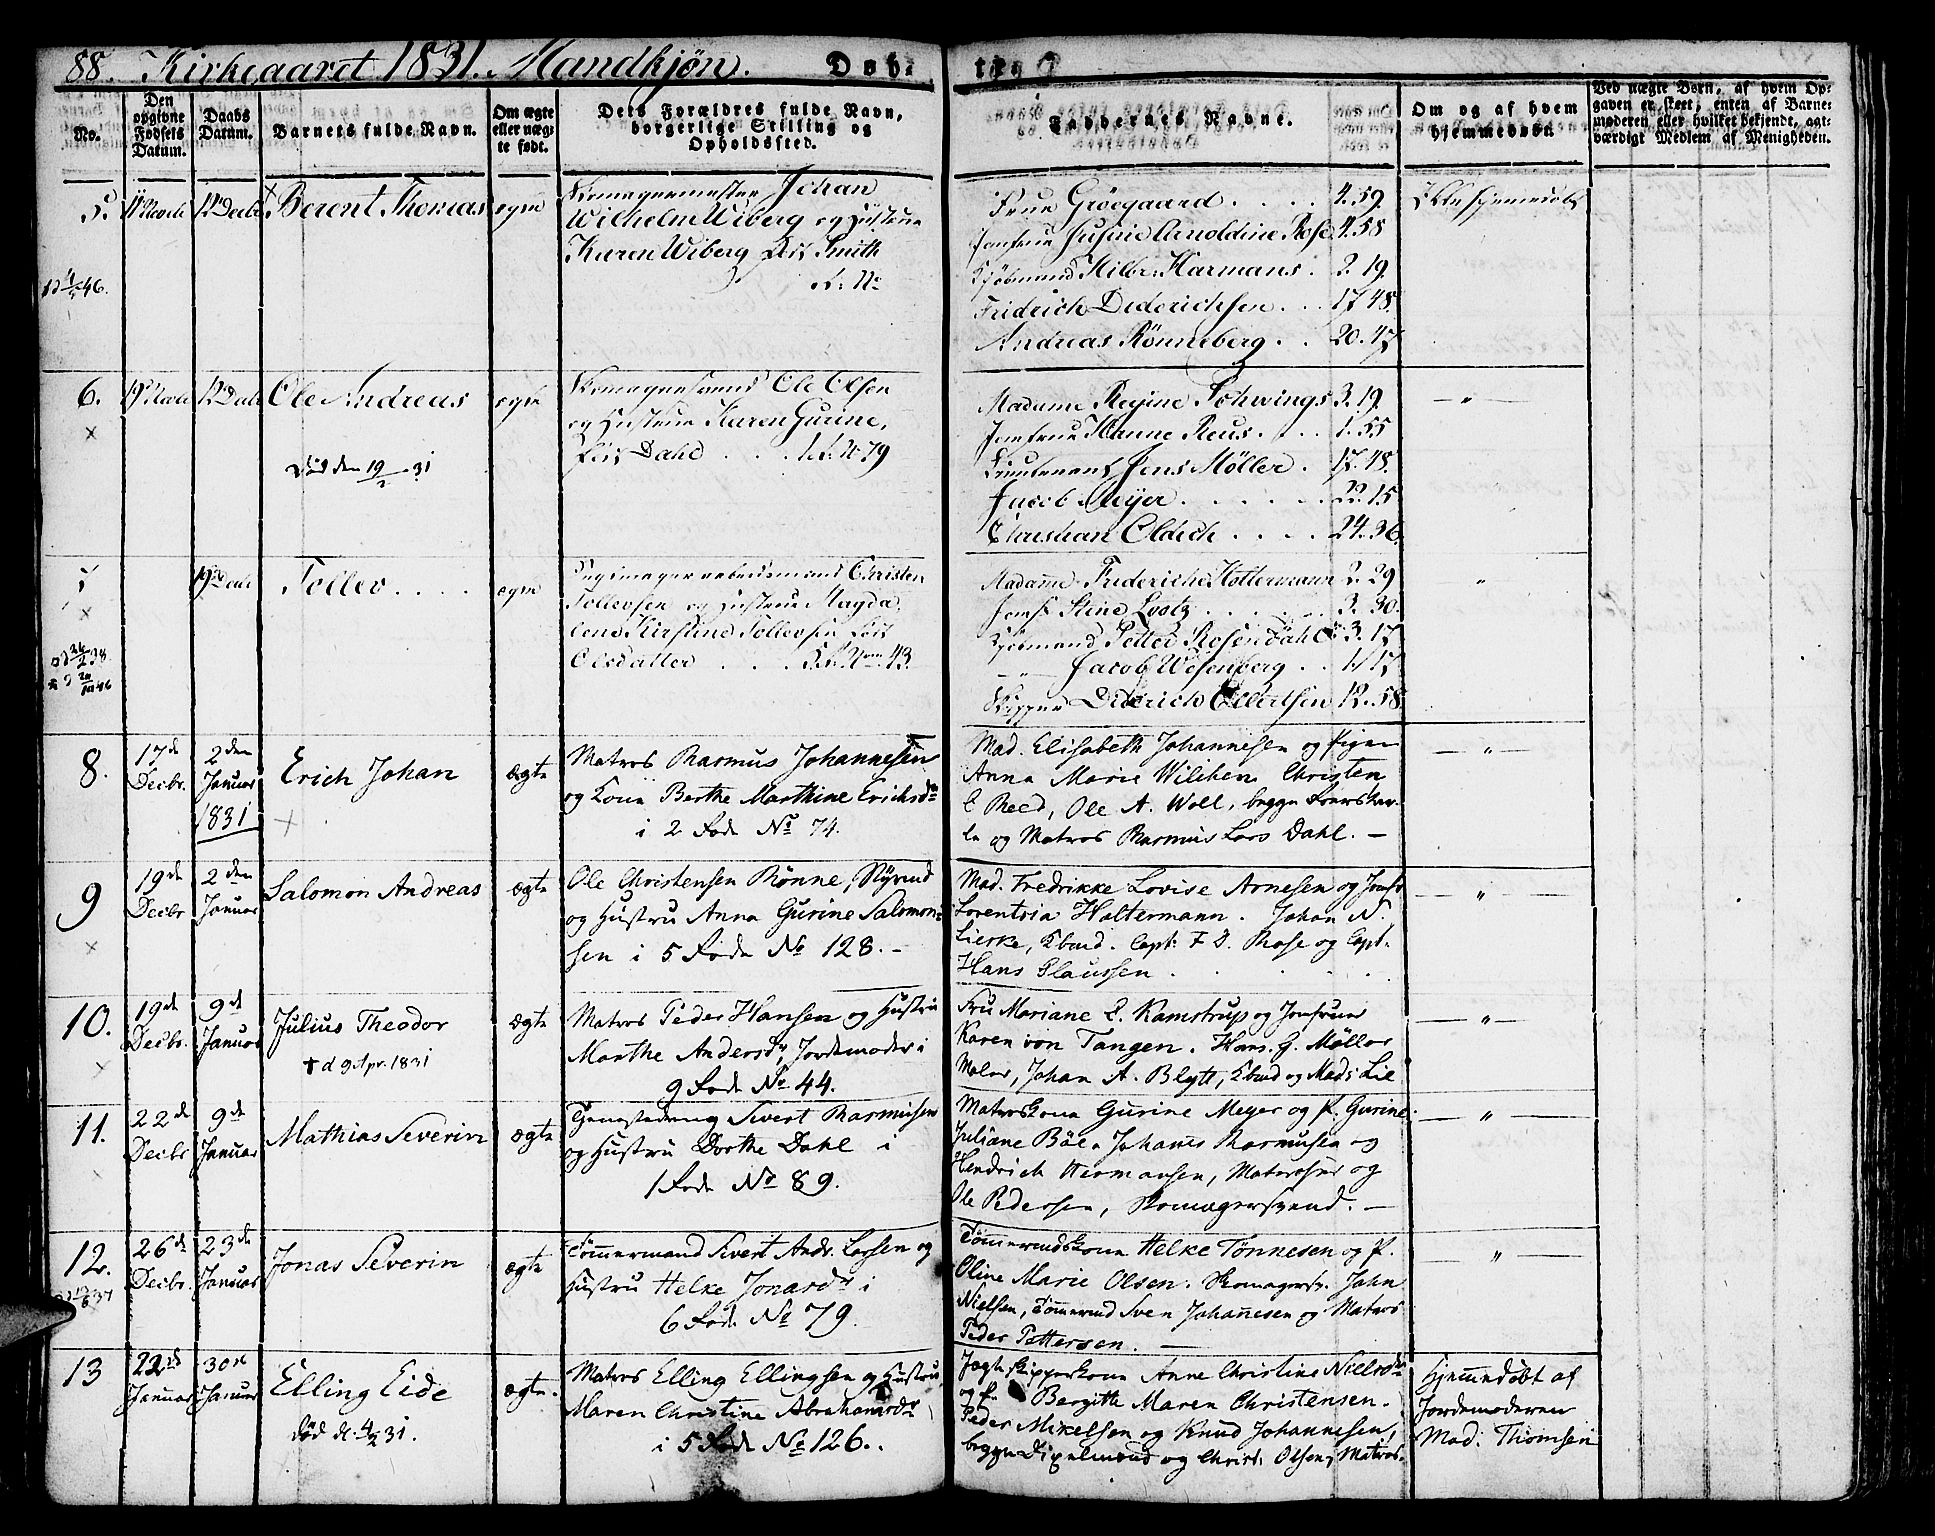 88. Kirkeaaret 1831. Mandkjøn. Døb-
te.
No.
Den opgivne Fødsels Datum.
Daabs Datum.
Barnets fulde Navn.
Om ægte eller uægte født.
Dets Forældres fulde Navn, borgerlige Stilling og Opholdssted.
Faddernes Navne.
Om og af hvem hjemmedøbt.
Ved uægte Børn, af hvem Opgaven er skeet, enten af Barnemoderen eller hvilket bekjendt, nærværdigt Medlem af Menigheden.
5. 11 Novbr 12 Decbr Berent Thomas ægte
Skomagermester Johan
Wilhelm Wiberg og Hustrue
Karen Wiberg født Smith
Frue Grøegaard 4.59.
Jomfrue Susine Arnoldine Rose 4.58
Kjøbmand Hilbr. Harmans 2.19.
Fridrich Diderichsen 17.48.
Andreas Rönneberg 20.47
Ikke hjemmedøbt
6. 19 Novbr 12 Decbr Ole Andreas ægte
Død den 19/2 31
Skomagersvend Ole Olsen
og Hustrue Karen Gurine,
født Dahl
Madame Regine Schwings 3.19.
Jomfrue Hanne Reus 1.55
Lieutenant Jens Møller 17.48.
Jacob Meyer 22.15
Christian Oldich 24.36.
— " —
7 19 Decbr Tollev ægte
arbeidsmand Christen
Tollevsen og Hustrue Magda
lene Kirstine Tollevsen født
Olsdatter
Madame Frideriche Holtermann 2.29
Jomf. Stine Lootz 3.30.
Kjøbmand Petter Rosendahl 3.17
Jacob Wesenberg 1.17
Skipper Diderich Ellertsen 12.58.
"
8. 17de Decbr. 2den Januar 1831 Erich Johan ægte
Matros Rasmus Johannesen
og Kone Berthe Marthine Erichsdr
i 2 Rode No 74.
Mad. Elisabeth Johannesen og Pigen
Anna Marie Wilchen. Christen
E Reed, Ole A. Woll, begge
og Matros Rasmus Lars Dahl. —
— " —
9 19de Decbr 2den Januar Salomon Andreas ægte
Ole Christensen Rönne,
og Hustru Anna Gurine Salomon-
sen i 5 Rode No 128. —
Mad. Fredrikke Lovise Arnesen og Jomfr
Lorentzia Holtermann. Johan N.
Lierke, Kbmd. Capt: F D. Rose og Capt.
Hans Claussen
— " —
10. 19de Decbr. 9d Januar Julius Theodor ægte
† d 9 Apr. 1831
Matros Peder Hansen og Hustru
Marthe Andersdr, Jordemoder i
9 Rode No 44.
Fru Mariane E. Kamstrup og Jomfruen
Karen von Tangen. Hans. G. Møller
Maler, Johan A. Blytt, Kbmd og Mads Lie
— " —
11. 22de Decbr 9d Januar Mathias Severin ægte
Sivert Rasmusen
og Hustru Dorthe Dahl i
1 Rode No 89.
Matroskone Gurine Meyer og P. Gurine
Juliane Böe. Johanes Rasmusen og
Hendrich Hermansen, Matroser og
Ole Pedersen, Skomagersvend. —
— " —
12. 26de Decbr. 23de Januar Jonas Severin ægte
Tömmermand Sivert Andr. Larsen og
Hustru Helke Jonasdr i
6 Rode No 79.
Tömmermdskone Helke Tönnesen og P.
Oline Marie Olsen. Skomagersv. John
Nielsen, Tömmermd Sven Johannesen og Matros
Peder Pettersen. —
— " —
13 22de Januar 30te Januar Elling Eide ægte.
død d. 4/2 31.
Matros Elling Ellingsen og Hustru
Maren Christine Abrahamsdr
i 5 Rode No 126.
Jagtskipperkone Anne Christine Nielsdr
og P. Bergitte Maren Christensen.
Peder Mikelsen og Knud Johannesen,
begge og Christ. Olsen, Matros.
Hjemmedøbt af
Jordemoderen
Mad: Thomsen